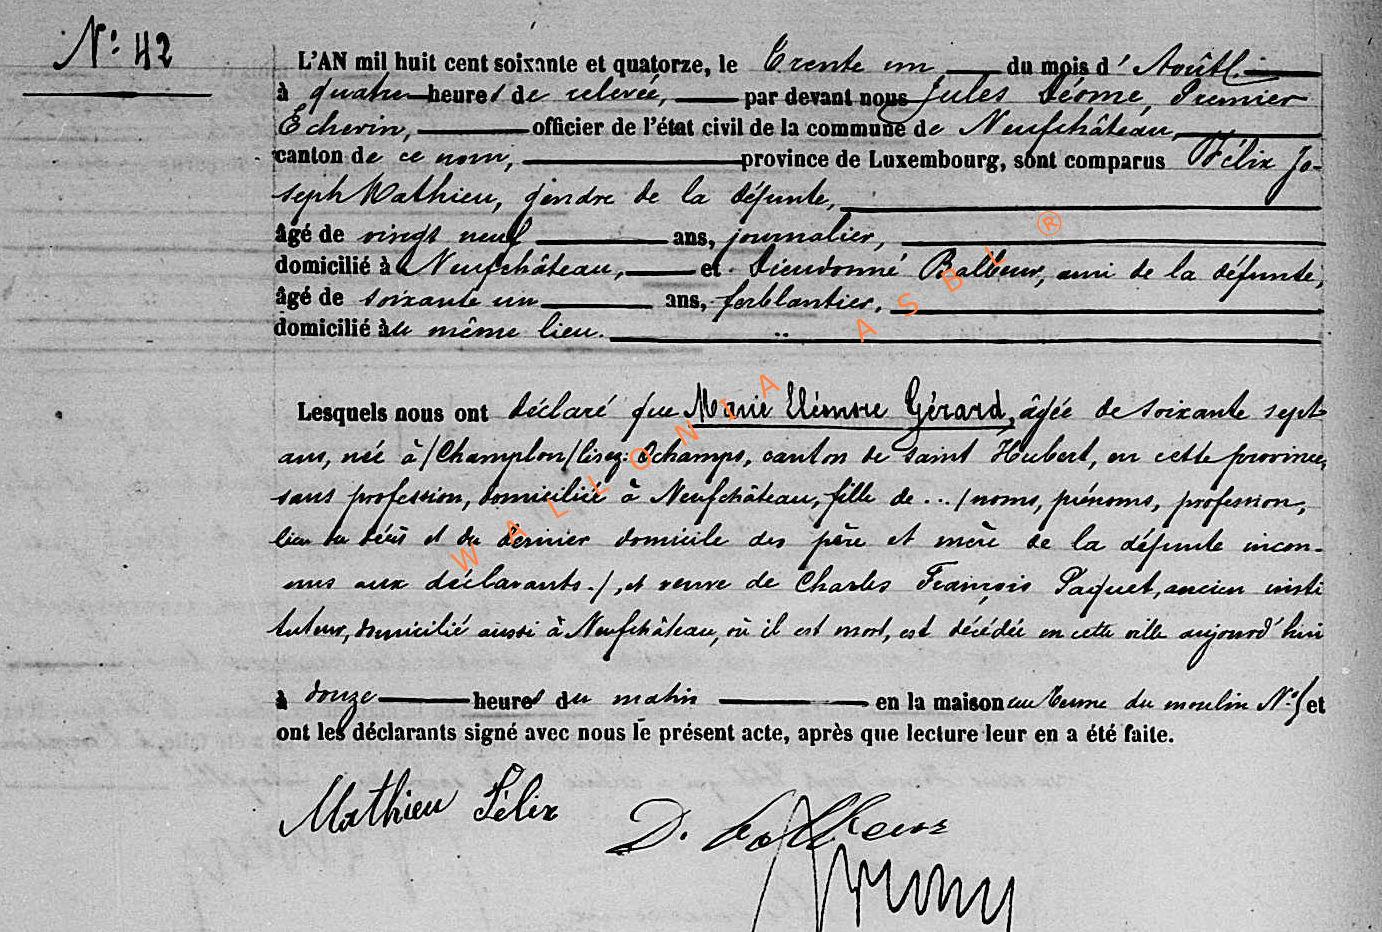 N° 42
L'AN mil huit cent soixante et quatorze, le Trente un du mois d'Août
à quatre heures de relevée, par devant nous Jules Déome, Premier
Echevin, officier de l'état civil de la commune de Neufchâteau,
canton de ce nom, province de Luxembourg, sont comparus Félix Jo-
seph Mathieu, gendre de la défunte,
âgé de vingt neuf ans, journalier,
domicilié à Neufchâteau, et Dieudonné Balbeur, ami de la défunte,
âgé de soixante un ans, ferblantier,
domicilié au même lieu.
Lesquels nous ont déclaré que Marie Eléonore Gérard, âgée de soixante sept
ans, née à /Champlon/lisez: Ochamps, canton de saint Hubert, en cette province,
sans profession, domiciliée à Neufchâteau, fille de ... /noms, prénoms, profession,
lieu du décès et du dernier domicile des père et mère de la défunte incon-
nus aux déclarants./, et veuve de Charles François Paquet, ancien insti
tuteur, domicilié aussi à Neufchâteau, où il est mort, est décédée en cette ville aujourd'hui
à douze heures du matin en la maison au Terme du moulin N° 5 et
ont les déclarants signé avec nous le présent acte, après que lecture leur en a été faite.
Mathieu Félix
D.
WALLONIA ASBL ®